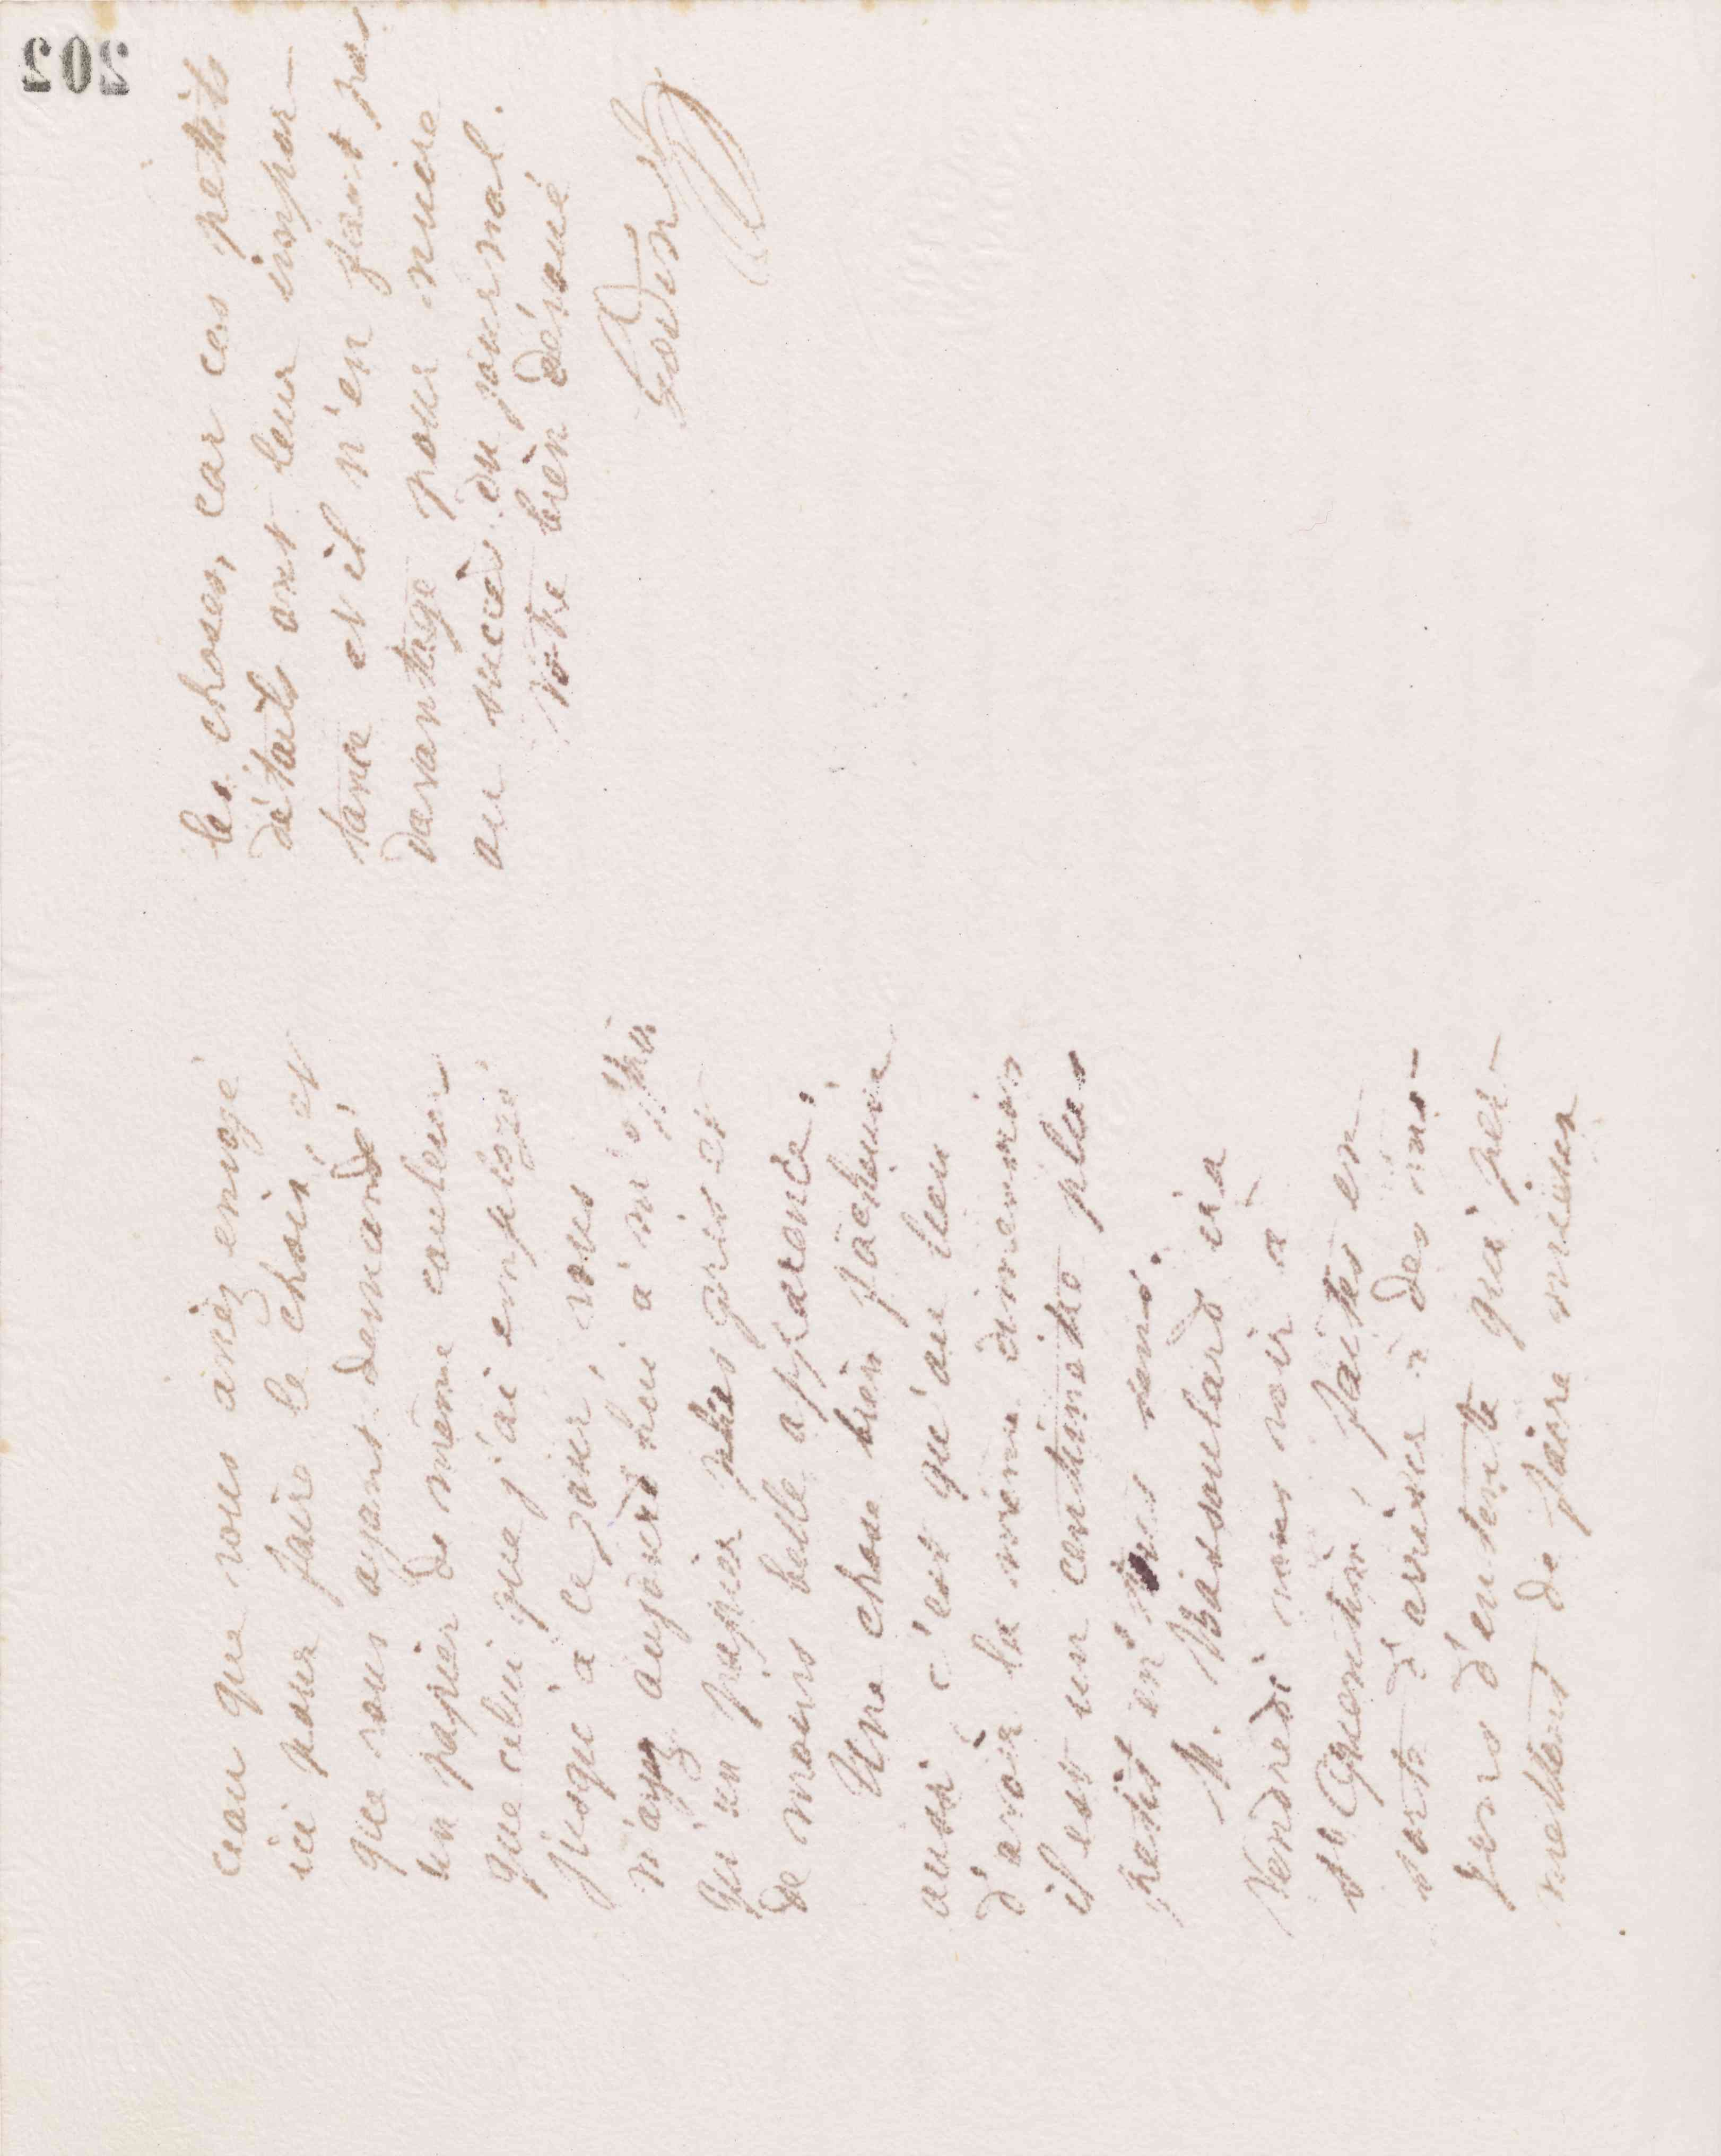 ceau que vous aviez envoyé
ici pour faire le choix, et
que vous ayant demandé
un papier de même couleur
que celui que j'ai employé
jusqu'à ce jour, vous
n'ayez aujourd'hui à m'offrir
qu'un papier plus gris et
de moins belle apparence.
Une chose bien fâcheuse
aussi c'est qu'au lieu
d'avoir la même dimension
il est un centimètre plus
petit en tous sens.
M. Bassoulard ira
Vendredi vous voir à
St Quentin, faites en
sorte d'arriver à des mo-
yens d'entente qui per-
mettent de faire mieux
les choses, car ces petits
détails ont leur impor-
tance et il n'en faut pas
davantage pour nuire
au succès du journal.
Votre bien dévoué
Godin
202